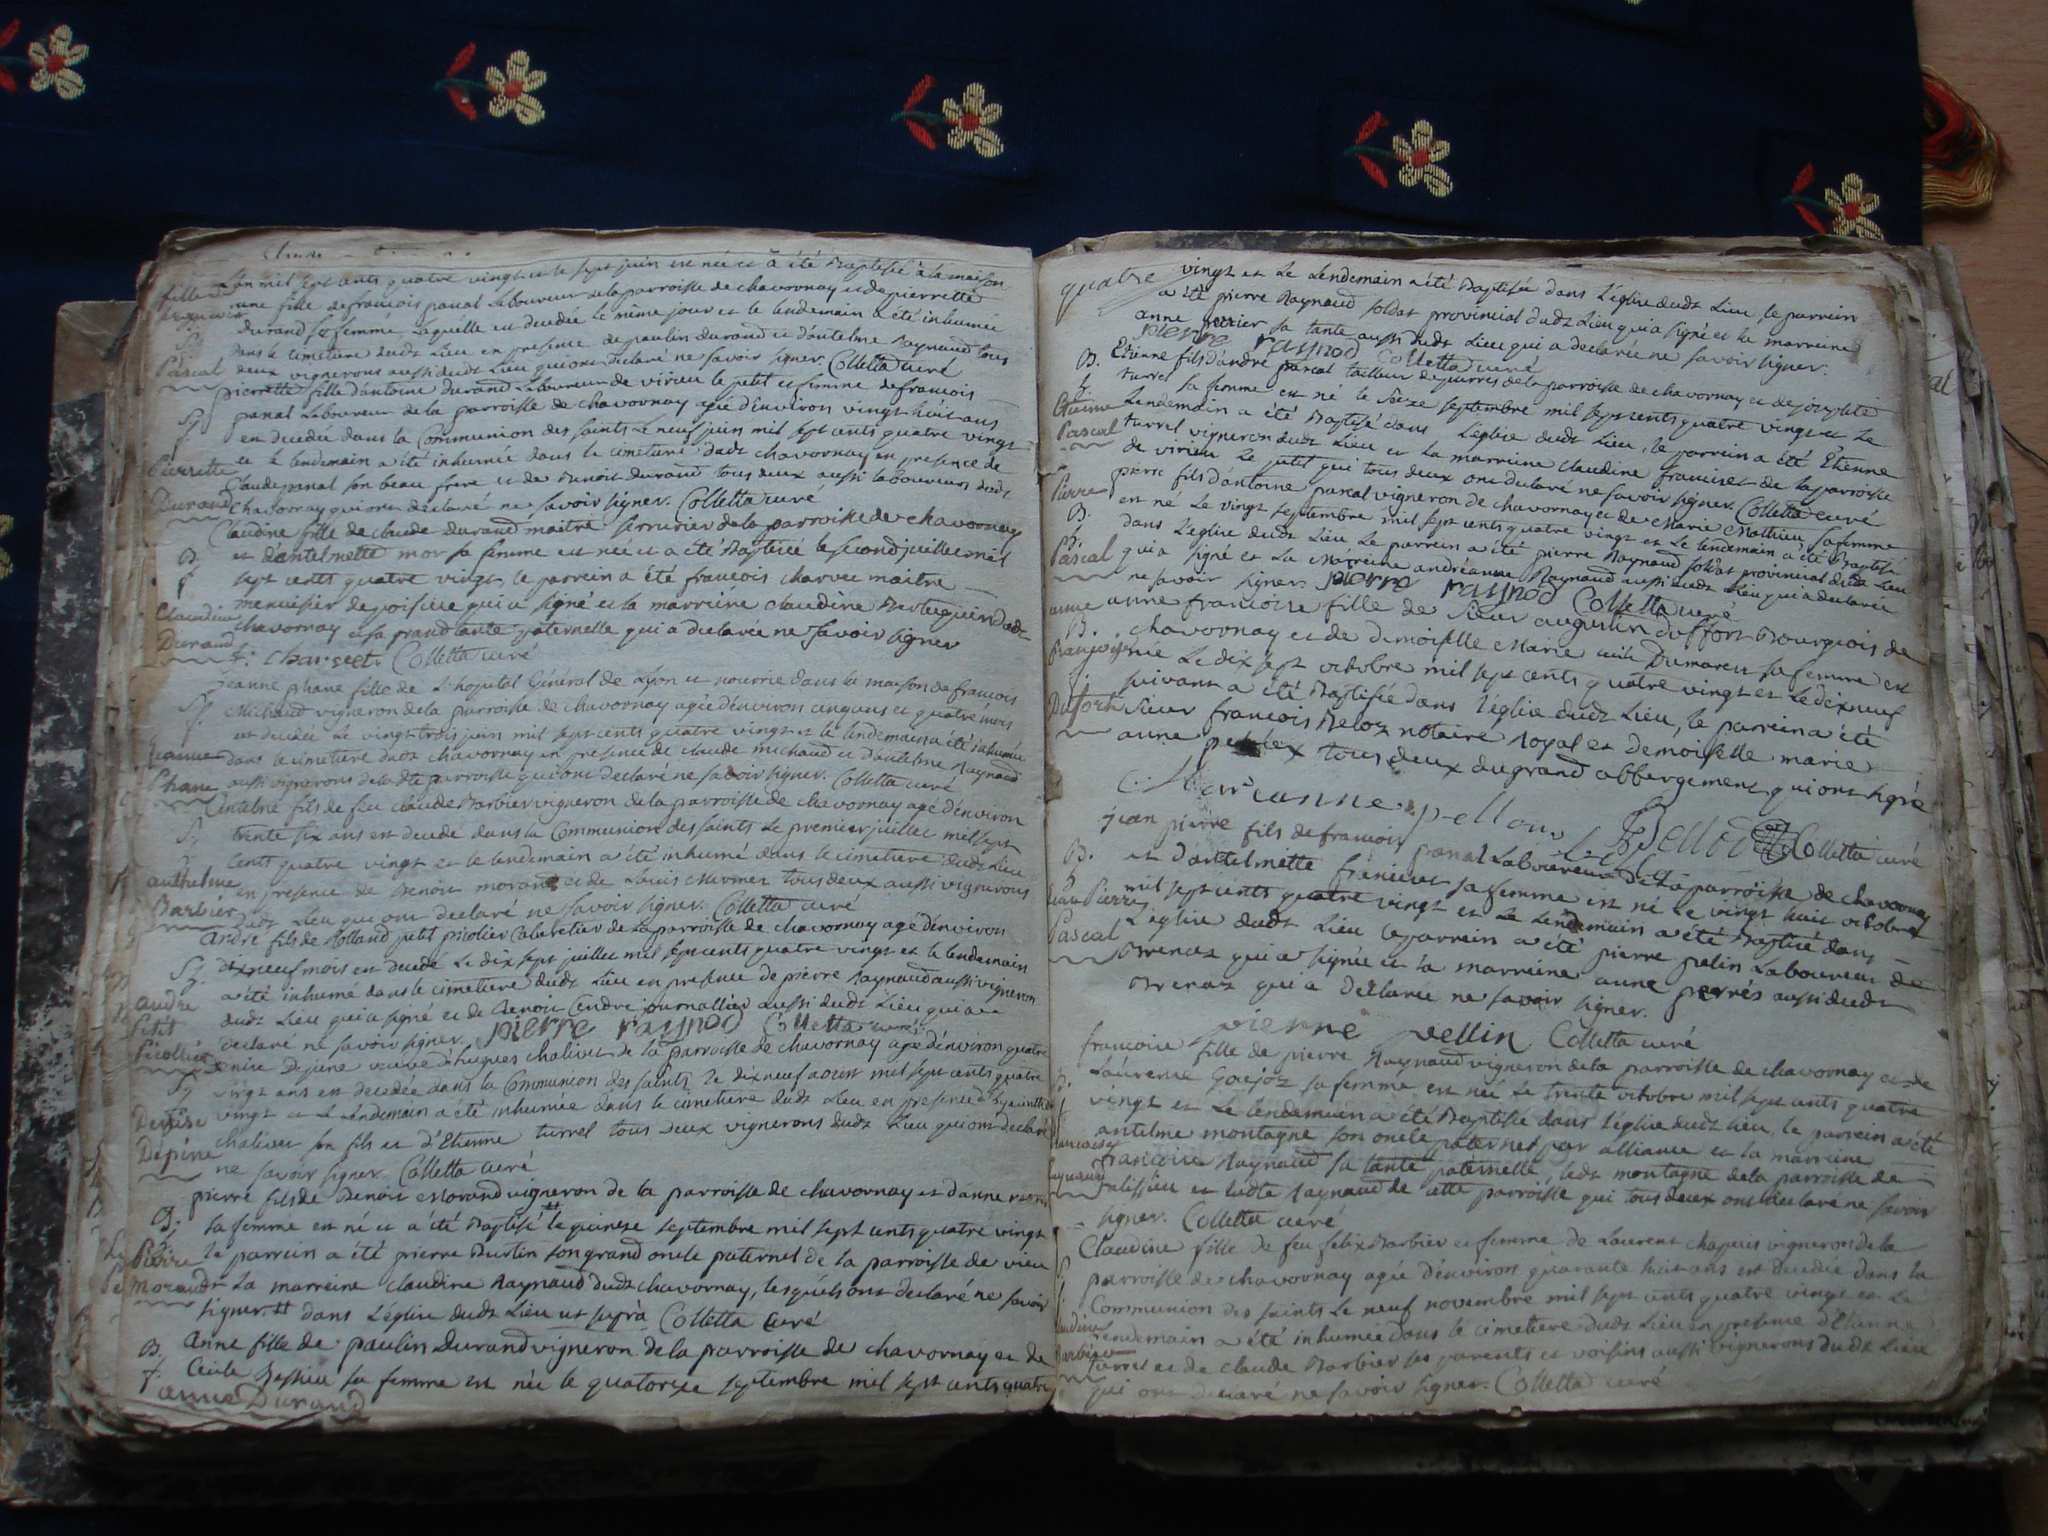 L'an mil sept cents quatre vingt et le sept juin est née et a été Baptisée à la maison
une fille de francois panal Laboureur de la parroisse de chavornay et de pierrette
durand sa femme, laquelle est decedée le même jour et le lendemain a été inhumée
dans le cimetiere dudt Lieu en presence de paulin durand et d'antelme Raynaud tous
deux vignerons aussi dudt Lieu qui ont declaré ne savoir signer. Colletta curé
Pascal
pierrette fille d'antoine durand Laboureur de virieu le petit et femme de francois
panal Laboureur de la parroisse de chavornay agée d'environ vingt huit ans
est decedée dans la Communion des saints Le neuf juin mil sept cents quatre vingt
et le lendemain a été inhumée dans le cimetiere dudt chavornay en presence de
Claude panal son beau frere et de Benoit durand tous deux aussi laboureurs dudt
chavornay qui ont declaré ne savoir signer. Colletta curé
Pierrette
Durand
Claudine fille de claude durand maitre serrurier de la parroisse de chavornay
et d'antelmette mor sa femme est née et a été Baptisée le second juillet mil
sept cents quatre vingt, le parrein a été francois charvet maitre
menuisier de poisieu qui a signé et la marreine claudine Berthuguien dudt
chavornay et sa grand tante paternelle qui a declarée ne savoir signer
Colletta curé
B.
Claudine
Durand
jeanne phane fille de L'hopital Géneral de Lyon et nourrie dans la maison de francois
Michaud vigneron de la parroisse de chavornay agée d'environ cinq ans et quatre mois
est decedée le vingt trois juin mil sept cents quatre vingt et le lendemain a été inhumée
dans le cimetiere dudt chavornay en presence de claude michaud et d'antelme Raynaud
aussi vignerons de ladte parroisse qui ont declaré ne savoir signer. Colletta curé
Jeanne
Phane
antelme fils de feu claude Barbier vigneron de la parroisse de chavornay agé d'environ
trente six ans est decedé dans la Communion des saints Le premier juillet mil sept
Cents quatre vingt et le lendemain a été inhumé dans le cimetiere dudt Lieu
en presence de Benoit morand et de Louis Mermet tous deux aussi vignerons
dudt Lieu qui ont declaré ne savoir signer. Colletta curé
anthelme
Barbier
André fils de Rolland petit picolier Cabaretier de la parroisse de chavornay agé d'environ
dix neuf mois est decedé Le dix sept juillet mil sept cents quatre vingt et le lendemain
a été inhumé dans le cimetiere dudt Lieu en presence de pierre Raynaud aussi vigneron
dudt Lieu qui a signé et de Benoit Cendre journallier aussi dudt Lieu qui a
declaré ne savoir signer. pierre raynod Colletta curé
andre
Petit
Picollier
Denise Depine veuve d'hugues chalivet de la parroisse de chavornay agée d'environ quatre
vingt ans est decedée dans la Communion des saints le dix neuf aoust mil sept cents quatre
vingt et Le lendemain a été inhumée dans le cimetiere dudt Lieu en presence d'hyacinthe
chalivet son fils et d'Etienne turrel tous deux vignerons dudt Lieu qui ont declaré
ne savoir signer. Colletta curé
Denise
Dépine
pierre fils de Benoit Morand vigneron de la parroisse de chavornay et d'anne
sa femme est né et a été Baptisé le quinze septembre mil sept cents quatre vingt
le parrein a été pierre Burtin son grand oncle paternel de la parroisse de vieu
et La marreine claudine Raynaud dudt chavornay, lesquels ont declaré ne savoir
signer. dans L'église dudt Lieu Colletta curé
B.
Pierre
Morand
anne fille de paulin Durand vigneron de la parroisse de chavornay et de
Cecile Bessieu sa femme est née le quatorze septembre mil sept cents quatre
B.
anne Durand
quatre vingt et Le lendemain a été Baptisée dans L'église dudt Lieu, le parrein
a été pierre Raynaud soldat provincial dudt Lieu qui a signé et la marreine
anne sa tante aussi dudt Lieu qui a declarée ne savoir signer.
pierre raynod Colletta curé
Etienne fils d'andré pascal tailleur de pierres de la parroisse de chavornay et de josephte
turrel sa femme est né le seize septembre mil sept cents quatre vingt et Le
Lendemain a été Baptisé dans L'église dudt Lieu, le parrein a été Etienne
turrel vigneron dudt Lieu et La marreine claudine francires de la parroisse
de virieu Le petit qui tous deux ont declaré ne savoir signer. Colletta curé
B.
Etienne
Pascal
pierre fils d'antoine pascal vigneron de chavornay et de Marie Mathieu sa femme
est né Le vingt septembre mil sept cents quatre vingt et Le lendemain a été Baptisé
dans L'église dudt Lieu Le parrein a été pierre Raynaud soldat provincial dudt Lieu
qui a signé et La Marreine andréanne Raynaud aussi dudt Lieu qui a declarée
ne savoir signer. pierre raynod Colletta curé
Pierre
B.
Pascal
anne francoise fille de Sieur augustin duffort Bourgeois de
chavornay et de demoiselle Marie Dumarest sa femme est
née Le dix sept octobre mil sept cents quatre vingt et Le dix neuf
suivant a été Baptisée dans L'église dudt Lieu, le parrein a été
Sieur francois Beloz notaire Royal et demoiselle marie
anne tous deux du grand abbergement qui ont signé
anne
B.
Françoise
Dufort
Marianne Colletta curé
jean pierre fils de francois panal Laboureur de La parroisse de chavornay
et d'antelmette sa femme est né Le vingt huit octobre
mil sept cents quatre vingt et Le Lendemain a été Baptisé dans
L'église dudt Lieu Le parrein a été pierre pelin Laboureur de
Brenaz qui a signée et la marreine anne aussi dudt
Brenaz qui a declarée ne savoir signer.
pierre vellin Colletta curé
B.
Jean Pierre
Pascal
francoise fille de pierre Raynaud vigneron de la parroisse de chavornay et de
Laurence Goujoz sa femme est née Le trente octobre mil sept cents quatre
vingt et Le lendemain a été Baptisée dans L'église dudt Lieu, le parrein a été
antelme montagne son oncle paternel par alliance et la marreine
francoise Raynaud sa tante paternelle, ledt montagne de la parroisse de
talissieu et ladte Raynaud de cette parroisse qui tous deux ont declaré ne savoir
signer. Colletta curé
Claudine fille de feu felix Barbier et femme de Laurent chapuis vigneron de la
parroisse de chavornay agée d'environ quarante huit ans est decedée dans la
Communion des saints Le neuf novembre mil sept cents quatre vingt et Le
Lendemain a été inhumée dans le cimetiere dudt Lieu en presence d'Etienne
turrel et de claude Barbier ses parents et voisins aussi vignerons dudt Lieu
qui ont declaré ne savoir signer. Colletta curé